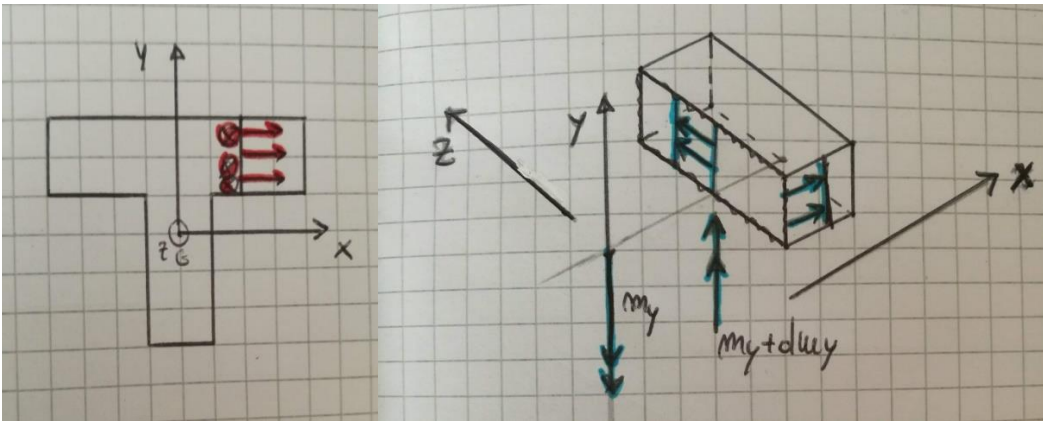 y
z G
x
z
y
x
my
my+dmy